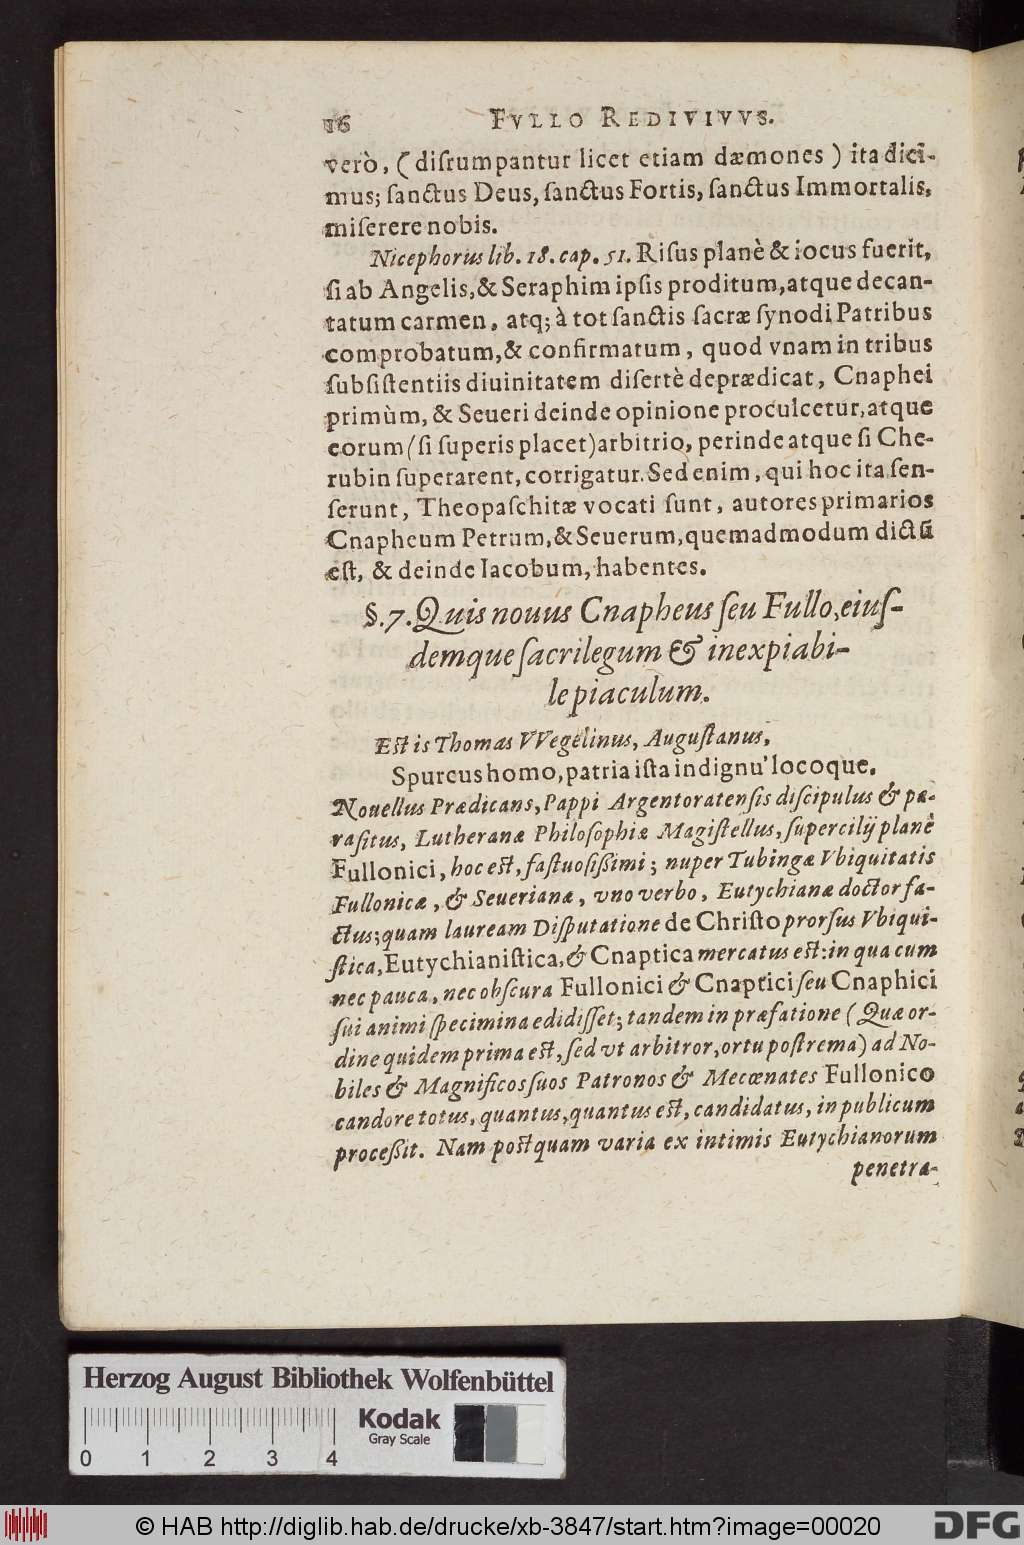 16 FVLLO REDIVIVVS.
verò, (diſrumpantur licet etiam dæmones) ita dici-
mus; ſanctus Deus, ſanctus Fortis, ſanctus Immortalis,
miſerere nobis.
Nicephorus lib. 18. cap. 51. Riſus planè & iocus fuerit,
ſi ab Angelis, & Seraphim ipſis proditum, atque decan-
tatum carmen, atq; à tot ſanctis ſacræ ſynodi Patribus
comprobatum, & confirmatum, quod vnam in tribus
ſubſiſtentiis diuinitatem diſertè deprædicat, Cnaphei
primùm, & Seueri deinde opinione proculcetur, atque
eorum (ſi ſuperis placet) arbitrio, perinde atque ſi Che-
rubin ſuperarent, corrigatur. Sed enim, qui hoc ita ſen-
ſerunt, Theopaſchitæ vocati ſunt, autores primarios
Cnapheum Petrum, & Seuerum, quemadmodum dictū
eſt, & deinde Iacobum, habentes.
§. 7. Quis nouus Cnapheus ſeu Fullo, eiuſ-
demque ſacrilegum & inexpiabi-
le piaculum.
Eſt is Thomas VVegelinus, Auguſtanus,
Spurcus homo, patria iſta indignu' locoque.
Nouellus Prædicans, Pappi Argentoratenſis diſcipulus & pa-
raſitus, Lutheranæ Philoſophiæ Magiſtellus, ſupercilij planè
Fullonici, hoc eſt, faſtuoſiſſimi; nuper Tubingæ Vbiquitatis
Fullonicæ, & Seuerianæ, vno verbo, Eutychianæ doctor fa-
ctus; quam lauream Diſputatione de Chriſto prorſus Vbiqui-
ſtica, Eutychianiſtica, & Cnaptica mercatus eſt: in qua cum
nec pauca, nec obſcura Fullonici & Cnaptici ſeu Cnaphici
ſui animi ſpecimina edidiſſet; tandem in præfatione (Quæ or-
dine quidem prima eſt, ſed vt arbitror, ortu poſtrema) ad No-
biles & Magnificos ſuos Patronos & Mecœnates Fullonico
candore totus, quantus, quantus eſt, candidatus, in publicum
proceſſit. Nam poſtquam varia ex intimis Eutychianorum
penetra-
Herzog August Bibliothek Wolfenbüttel
Kodak
Gray Scale
0 1 2 3 4
© HAB http://diglib.hab.de/drucke/xb-3847/start.htm?image=00020
DFG